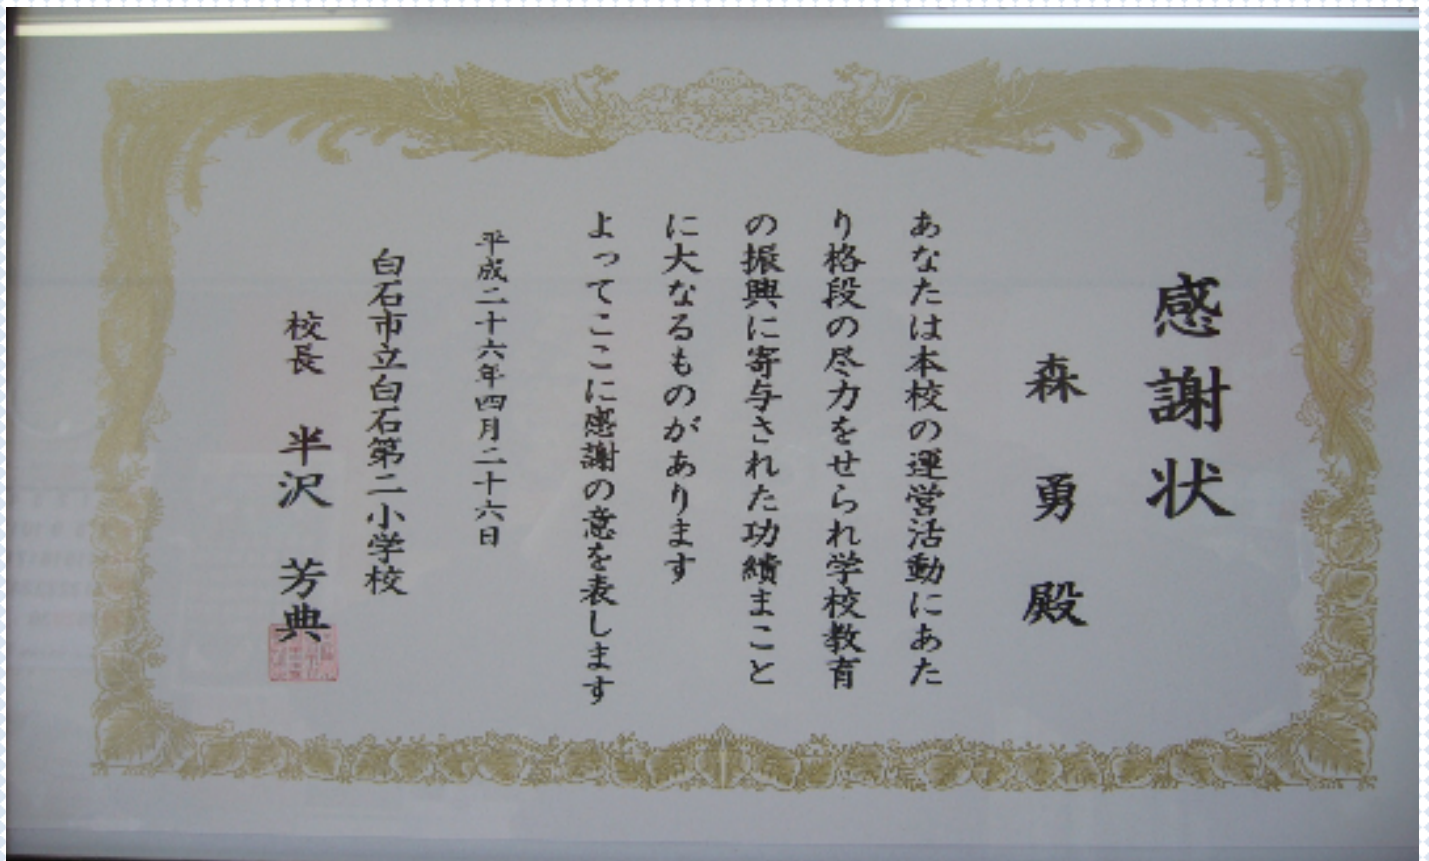 感謝状
森 勇 殿
あなたは本校の運営活動にあた
り格段の尽力をせられ学校教育
の振興に寄与された功績まこと
に大なるものがあります
よってここに感謝の意を表します
平成二十六年四月二十六日
白石市立白石第二小学校
校長 半沢 芳典